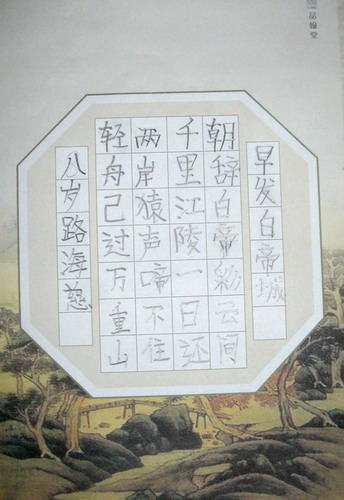 品翰堂
早发白帝城
朝辞白帝彩云间
千里江陵一日还
两岸猿声啼不住
轻舟己过万重山
八岁路海